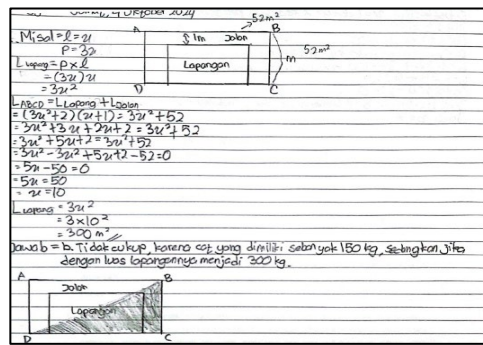 4 Oktober 2024
52m²
A B
Misal = l = x
↕ 1m Jalan
P = 3x
52m²
m
L lapang = p x l
Lapangan
= (3x)x
= 3x²
D C
L ABCD = L Lapang + L Jalan
= (3x²+2)(x+1) = 3x²+52
= 3x²+3x+2x+2 = 3x²+52
= 3x²+5x+2 = 3x²+52
= 3x²-3x²+5x+2-52=0
= 5x-50=0
= 5x=50
= x=10
L lapang = 3x²
= 3x10²
= 300 m²
Jawab = b. Tidak cukup, karena cat yang dimiliki sebanyak 150 kg, sedangkan jika
dengan luas lapangannya menjadi 300 kg.
A B
Jalan
Lapangan
D C